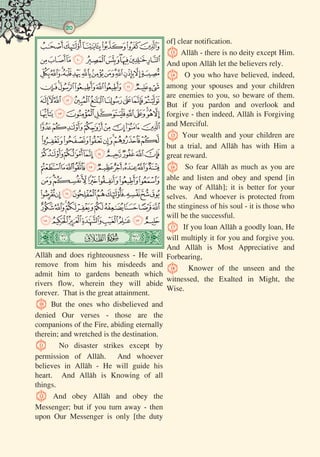 20
وَالَّذِينَ كَفَرُوا وَكَذَّبُوا بِآيَاتِنَا أُولَٰئِكَ أَصْحَابُ
النَّارِ خَالِدِينَ فِيهَا وَبِئْسَ الْمَصِيرُ ١٠ مَا أَصَابَ مِنْ
مُصِيبَةٍ إِلَّا بِإِذْنِ اللَّهِ وَمَنْ يُؤْمِنْ بِاللَّهِ يَهْدِ قَلْبَهُ وَاللَّهُ بِكُلِّ
شَيْءٍ عَلِيمٌ ١١ وَأَطِيعُوا اللَّهَ وَأَطِيعُوا الرَّسُولَ فَإِنْ
تَوَلَّيْتُمْ فَإِنَّمَا عَلَىٰ رَسُولِنَا الْبَلَاغُ الْمُبِينُ ١٢ اللَّهُ لَا إِلَٰهَ
إِلَّا هُوَ وَعَلَى اللَّهِ فَلْيَتَوَكَّلِ الْمُؤْمِنُونَ ١٣ يَا أَيُّهَا
الَّذِينَ آمَنُوا إِنَّ مِنْ أَزْوَاجِكُمْ وَأَوْلَادِكُمْ عَدُوًّا
لَكُمْ فَاحْذَرُوهُمْ وَإِنْ تَعْفُوا وَتَصْفَحُوا وَتَغْفِرُوا
فَإِنَّ اللَّهَ غَفُورٌ رَحِيمٌ ١٤ إِنَّمَا أَمْوَالُكُمْ وَأَوْلَادُكُمْ
فِتْنَةٌ وَاللَّهُ عِنْدَهُ أَجْرٌ عَظِيمٌ ١٥ فَاتَّقُوا اللَّهَ مَا اسْتَطَعْتُمْ
وَاسْمَعُوا وَأَطِيعُوا وَأَنْفِقُوا خَيْرًا لِأَنْفُسِكُمْ وَمَنْ
يُوقَ شُحَّ نَفْسِهِ فَأُولَٰئِكَ هُمُ الْمُفْلِحُونَ ١٦ إِنْ تُقْرِضُوا
اللَّهَ قَرْضًا حَسَنًا يُضَاعِفْهُ لَكُمْ وَيَغْفِرْ لَكُمْ وَاللَّهُ شَكُورٌ
حَلِيمٌ ١٧ عَالِمُ الْغَيْبِ وَالشَّهَادَةِ الْعَزِيزُ الْحَكِيمُ ١٨
سُورَةُ الطَّلَاقِ
Allāh and does righteousness - He will
remove from him his misdeeds and
admit him to gardens beneath which
rivers flow, wherein they will abide
forever. That is the great attainment.
But the ones who disbelieved and
denied Our verses - those are the
companions of the Fire, abiding eternally
therein; and wretched is the destination.
No disaster strikes except by
permission of Allāh. And whoever
believes in Allāh - He will guide his
heart. And Allāh is Knowing of all
things.
And obey Allāh and obey the
Messenger; but if you turn away - then
upon Our Messenger is only [the duty
of] clear notification.
Allāh - there is no deity except Him.
And upon Allāh let the believers rely.
O you who have believed, indeed,
among your spouses and your children
are enemies to you, so beware of them.
But if you pardon and overlook and
forgive - then indeed, Allāh is Forgiving
and Merciful.
Your wealth and your children are
but a trial, and Allāh has with Him a
great reward.
So fear Allāh as much as you are
able and listen and obey and spend [in
the way of Allāh]; it is better for your
selves. And whoever is protected from
the stinginess of his soul - it is those who
will be the successful.
If you loan Allāh a goodly loan, He
will multiply it for you and forgive you.
And Allāh is Most Appreciative and
Forbearing,
Knower of the unseen and the
witnessed, the Exalted in Might, the
Wise.